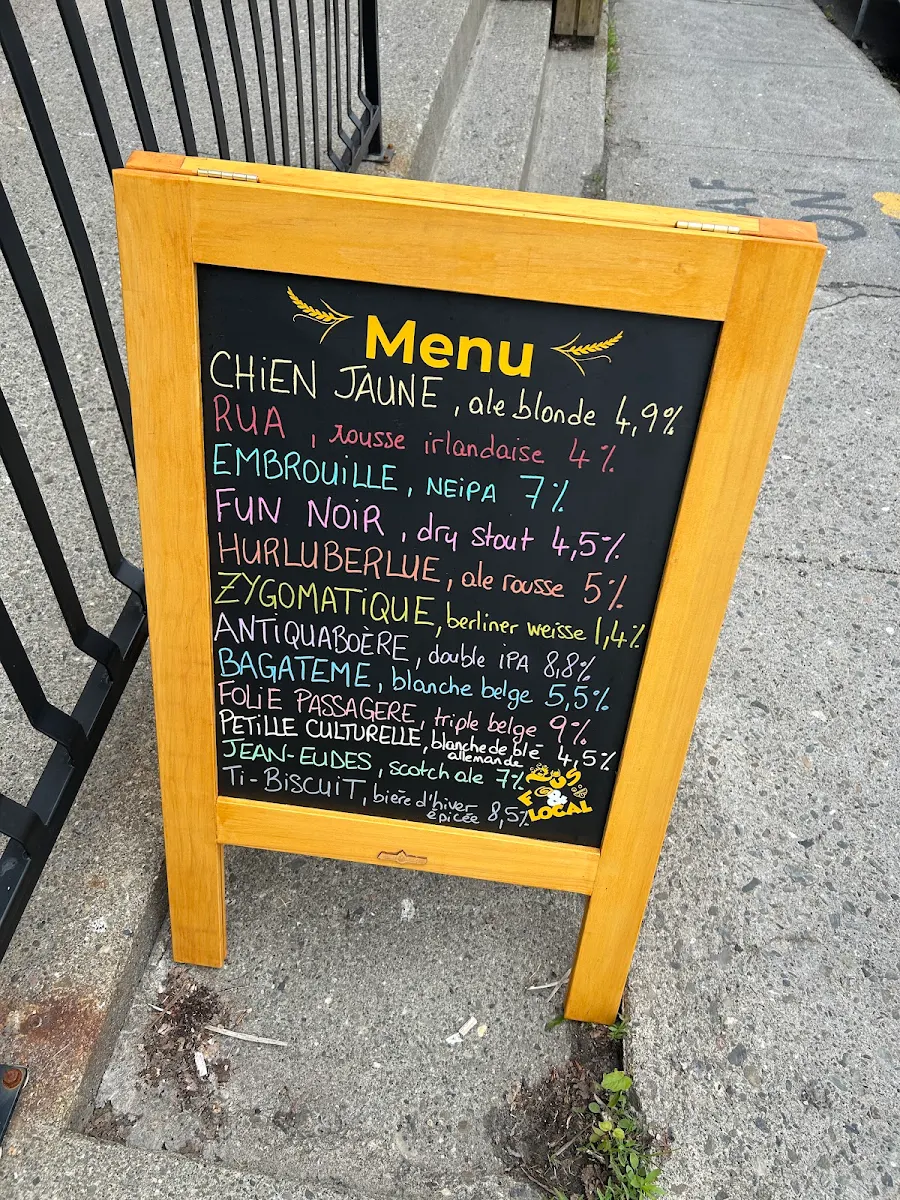 Menu
CHiEN JAUNE, ale blonde 4,9%
RUA, rousse irlandaise 4%
EMBROUiLLE, NEiPA 7%
FUN NOiR, dry stout 4,5%
HURLUBERLUE, ale rousse 5%
ZYGOMATiQUE, berliner weisse 1,4%
ANTiQUABOÈRE, double iPA 8,8%
BAGATEME, blanche belge 5,5%
FOLiE PASSAGERE, triple belge 9%
PETiLLE CULTURELLE, blanche de blé allemande 4,5%
JEAN-EUDES, scotch ale 7%
Ti-BiSCUiT, bière d'hiver épicée 8,5%
& LOCAL